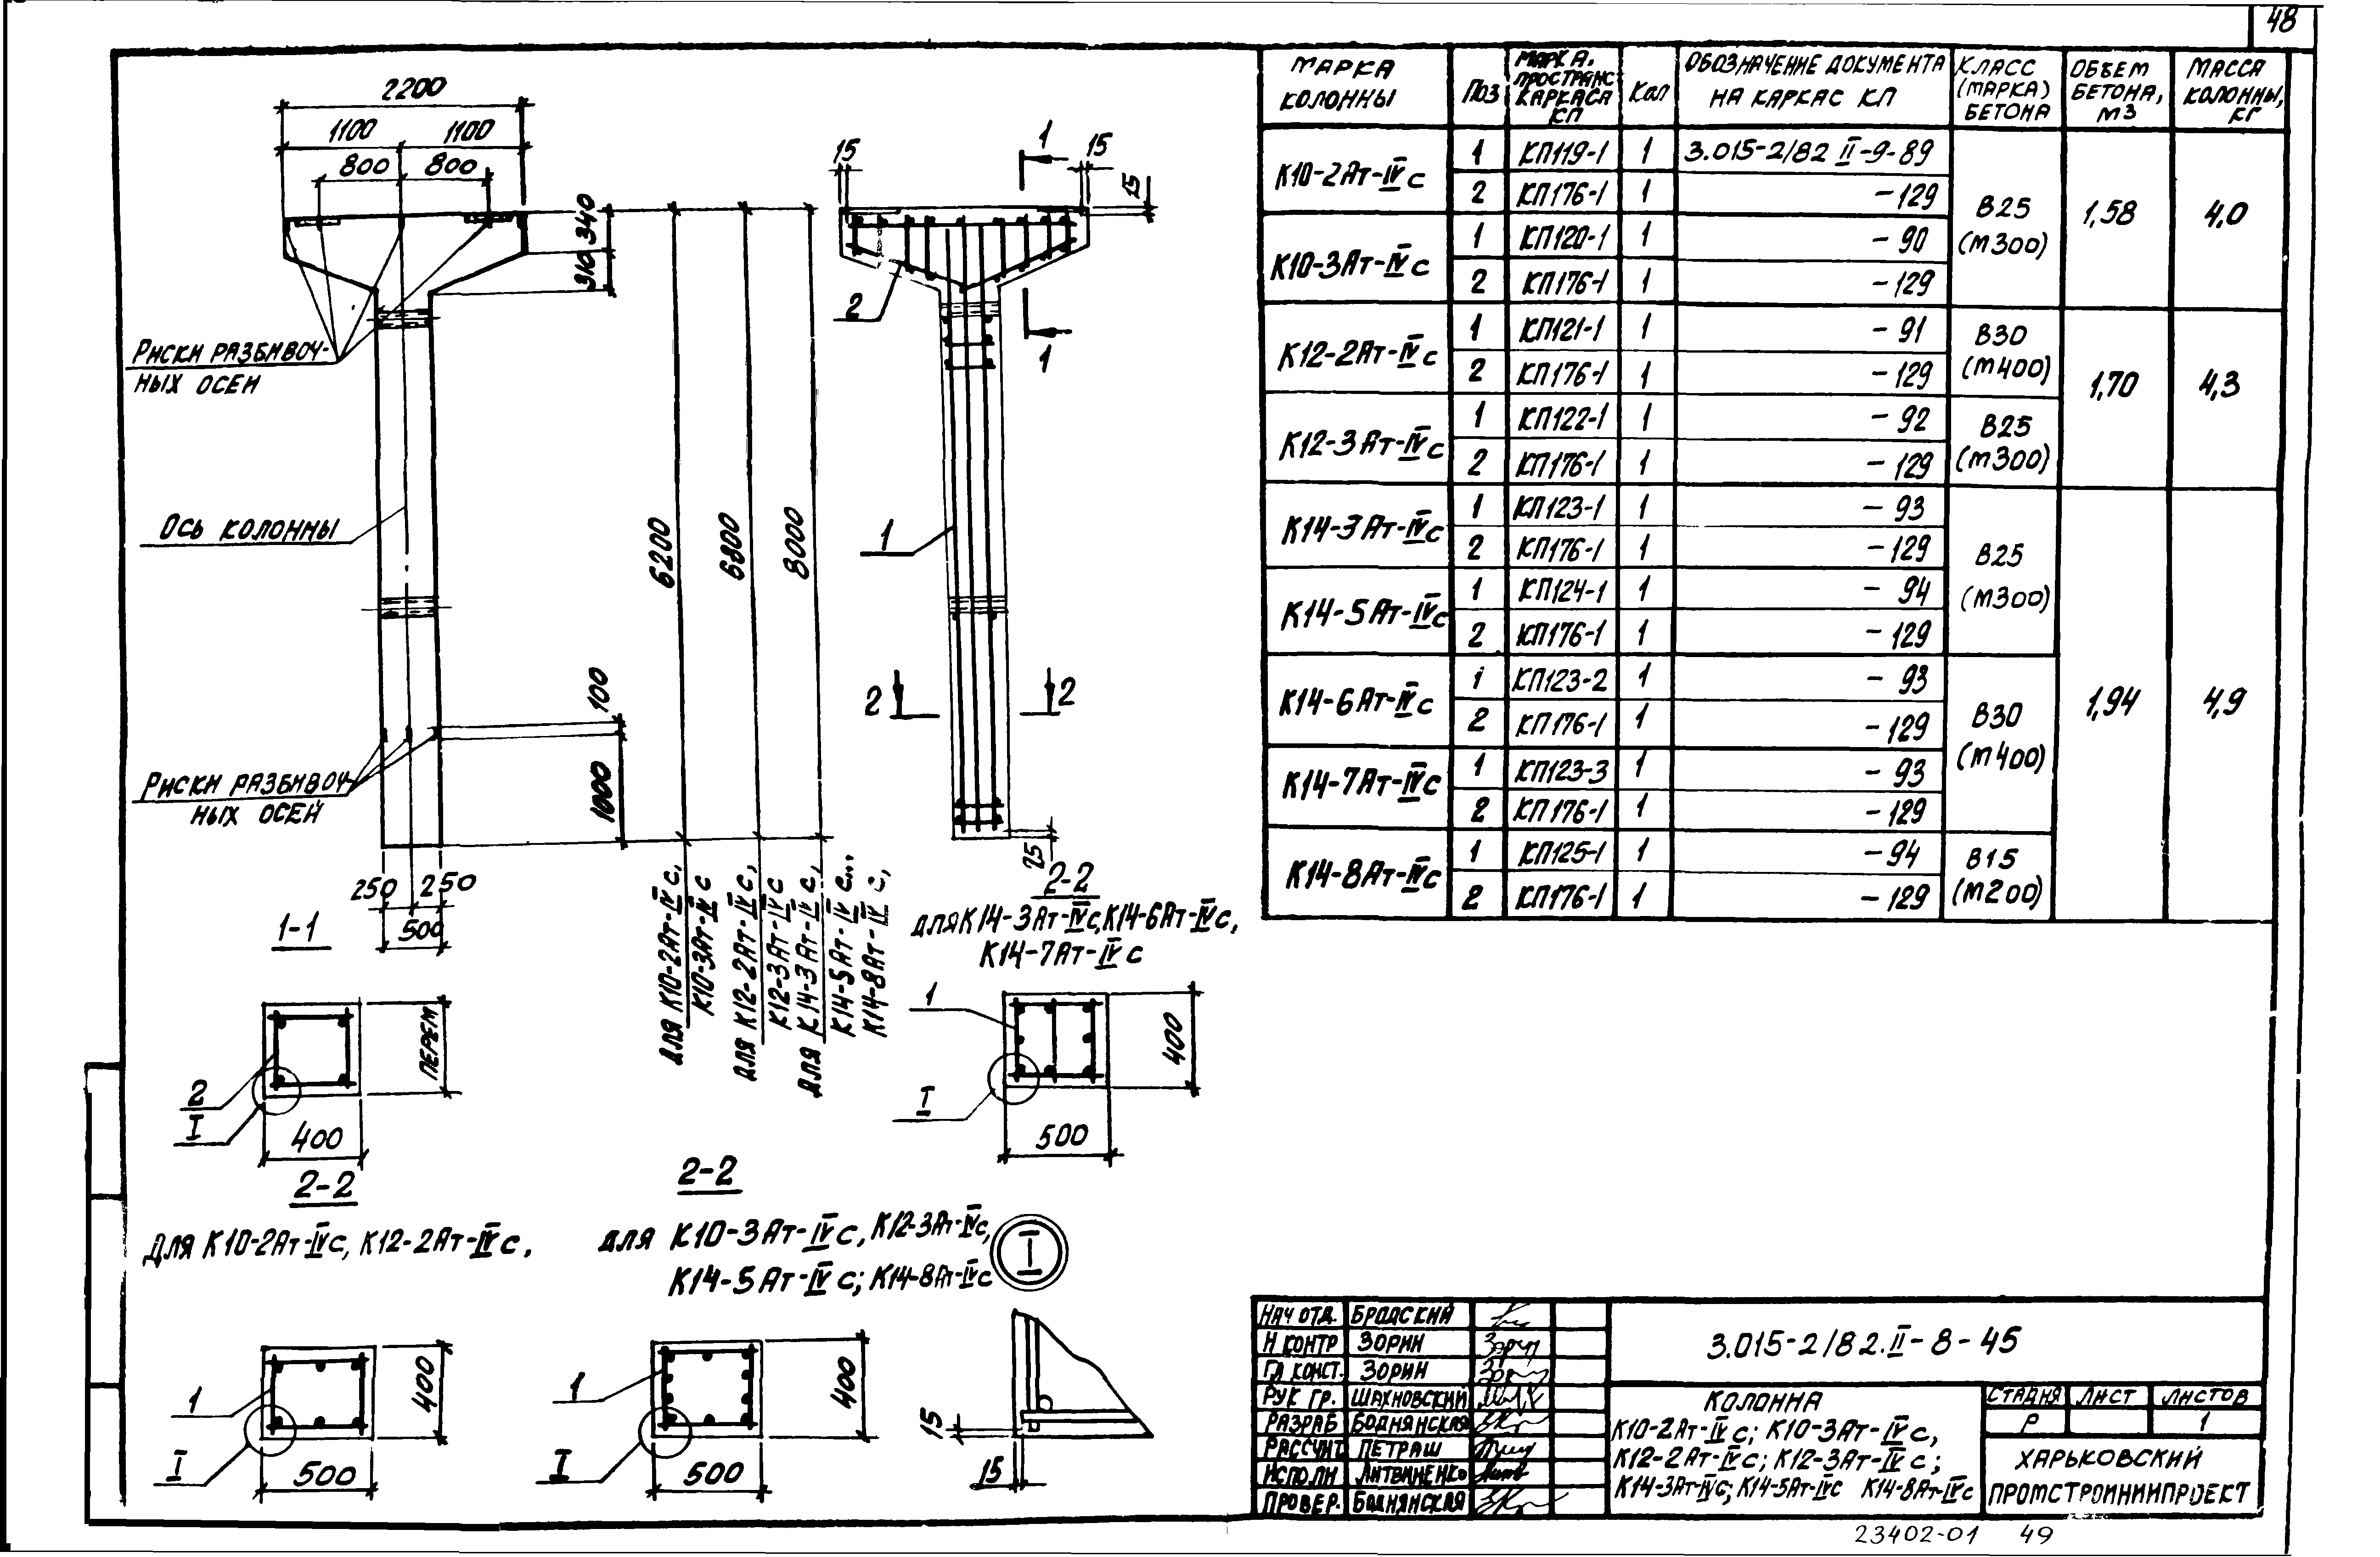 48
2200
1100 1100
800 800
340
310
Риски разбивоч-
ных осей
Ось колонны
6200
6800
8000
100
1000
Риски разбивоч-
ных осей
250 250
500
для К10-2Ат-IVс,
К10-3Ат-IVс
для К12-2Ат-IVс,
К12-3Ат-IVс
для К14-3Ат-IVс,
К14-5Ат-IVс...
К14-8Ат-IVс,
15
15
15
1
1
2
1
2 2
25
1-1
2
I
400
ПЕРЕМ
2-2
для К14-3Ат-IVс, К14-6Ат-IVс,
К14-7Ат-IVс
1
I
500
400
2-2
Для К10-2Ат-IVс, К12-2Ат-IVс,
1
I
500
400
2-2
для К10-3Ат-IVс, К12-3Ат-IVс,
К14-5Ат-IVс; К14-8Ат-IVс
1
I
500
400
I
15
15
МАРКА КОЛОННЫ Поз МАРКА. ПРОСТРАНС КАРКАСА КП Кол ОБОЗНАЧЕНИЕ ДОКУМЕНТА НА КАРКАС КП КЛАСС (МАРКА) БЕТОНА ОБЪЕМ БЕТОНА, М3 МАССА КОЛОННЫ, КГ
К10-2Ат-IVс 1 КП119-1 1 3.015-2/82 II-9-89 В25 (М300) 1,58 4,0
2 КП176-1 1 -129
К10-3Ат-IVс 1 КП120-1 1 -90
2 КП176-1 1 -129
К12-2Ат-IVс 1 КП121-1 1 -91 В30 (М400) 1,70 4,3
2 КП176-1 1 -129
К12-3Ат-IVс 1 КП122-1 1 -92 В25 (М300)
2 КП176-1 1 -129
К14-3Ат-IVс 1 КП123-1 1 -93 В25 (М300) 1,94 4,9
2 КП176-1 1 -129
К14-5Ат-IVс 1 КП124-1 1 -94
2 КП176-1 1 -129
К14-6Ат-IVс 1 КП123-2 1 -93 В30 (М400)
2 КП176-1 1 -129
К14-7Ат-IVс 1 КП123-3 1 -93
2 КП176-1 1 -129
К14-8Ат-IVс 1 КП125-1 1 -94 В15 (М200)
2 КП176-1 1 -129
НАЧ ОТД. БРОДСКИЙ
Н КОНТР ЗОРИН
ГЛ КОНСТ. ЗОРИН
РУК ГР. ШАХНОВСКИЙ
РАЗРАБ БОДНЯНСКАЯ
РАССЧИТ ПЕТРАШ
ИСПОЛН ЛИТВИНЕНКО
ПРОВЕР. БОДНЯНСКАЯ
3.015-2/82.II-8-45
КОЛОННА
К10-2Ат-IVс; К10-3Ат-IVс,
К12-2Ат-IVс; К12-3Ат-IVс;
К14-3Ат-IVс; К14-5Ат-IVс К14-8Ат-IVс
СТАДИЯ ЛИСТ ЛИСТОВ
Р 1
ХАРЬКОВСКИЙ
ПРОМСТРОЙНИИПРОЕКТ
23402-01 49